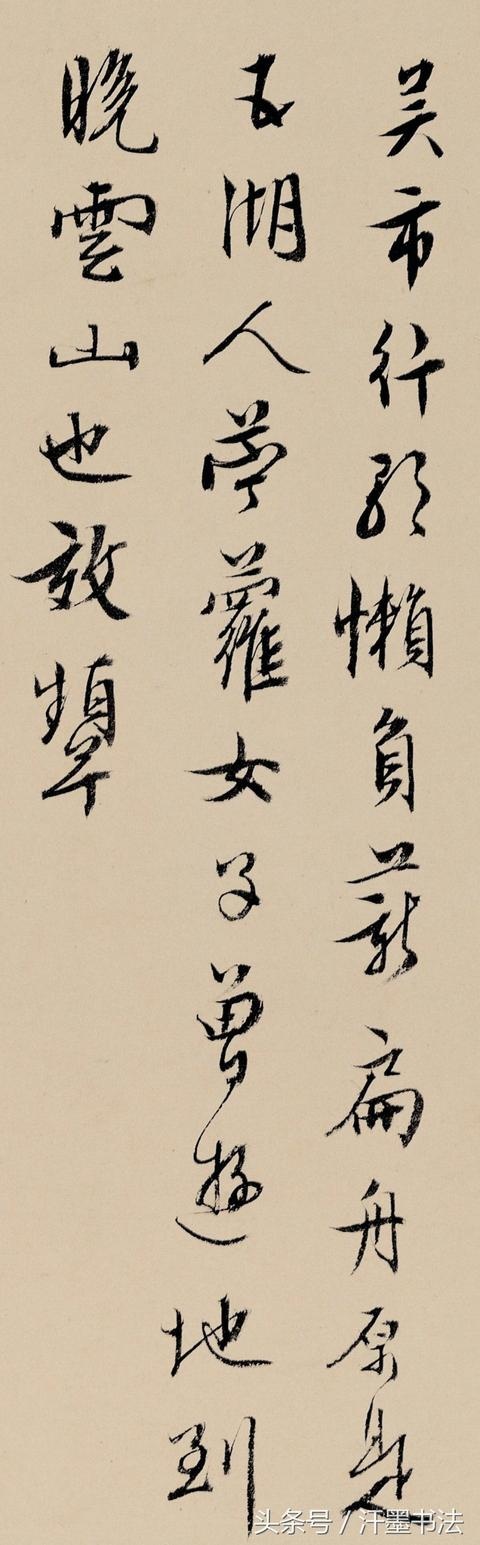 吴市行歌懶負薪扁舟原是
五湖人苧蘿女子曾遊地到
晚雲山也效顰
头条号/汗墨书法